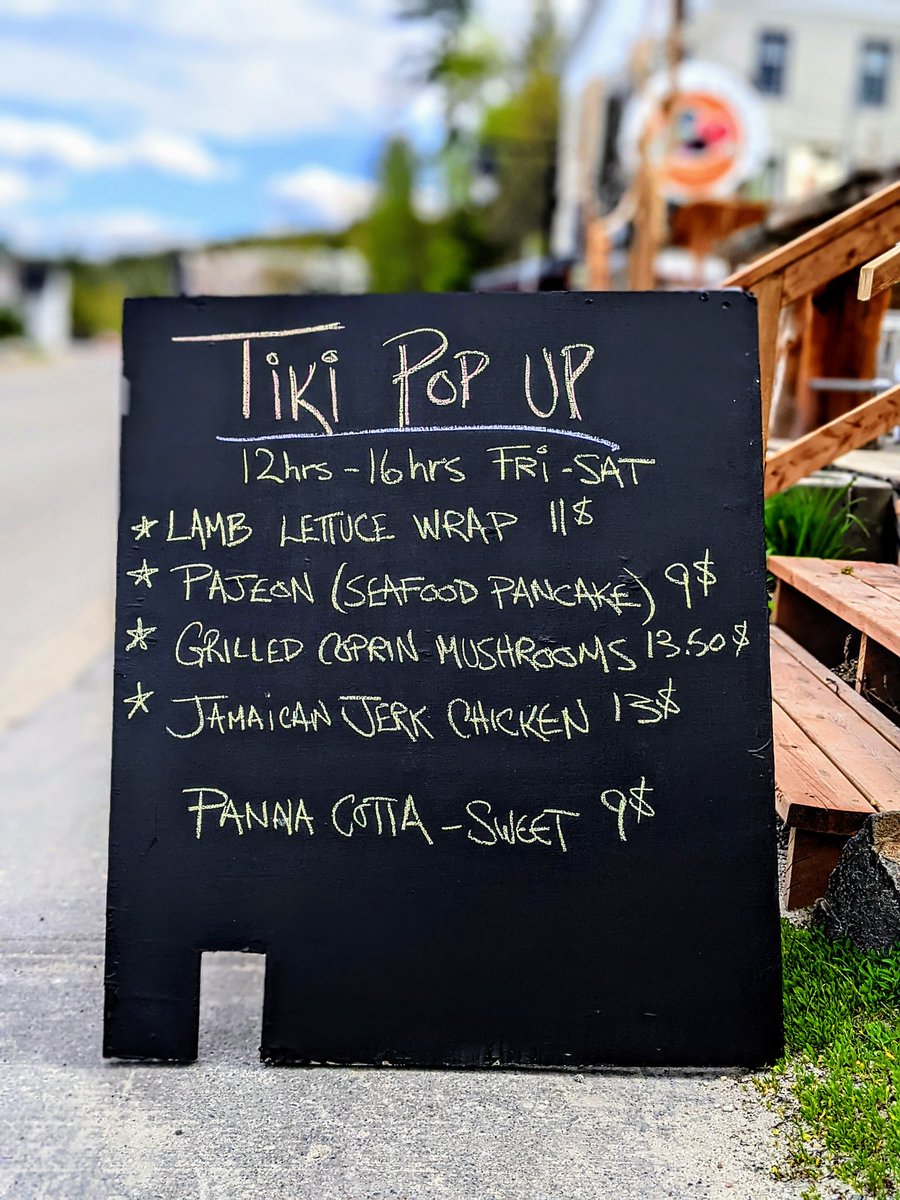 TIKI POP UP
12hrs - 16hrs FRI - SAT
* LAMB LETTUCE WRAP 11$
* PAJEON (SEAFOOD PANCAKE) 9$
* GRILLED COPRIN MUSHROOMS 13.50$
* JAMAICAN JERK CHICKEN 13$
PANNA COTTA - SWEET 9$